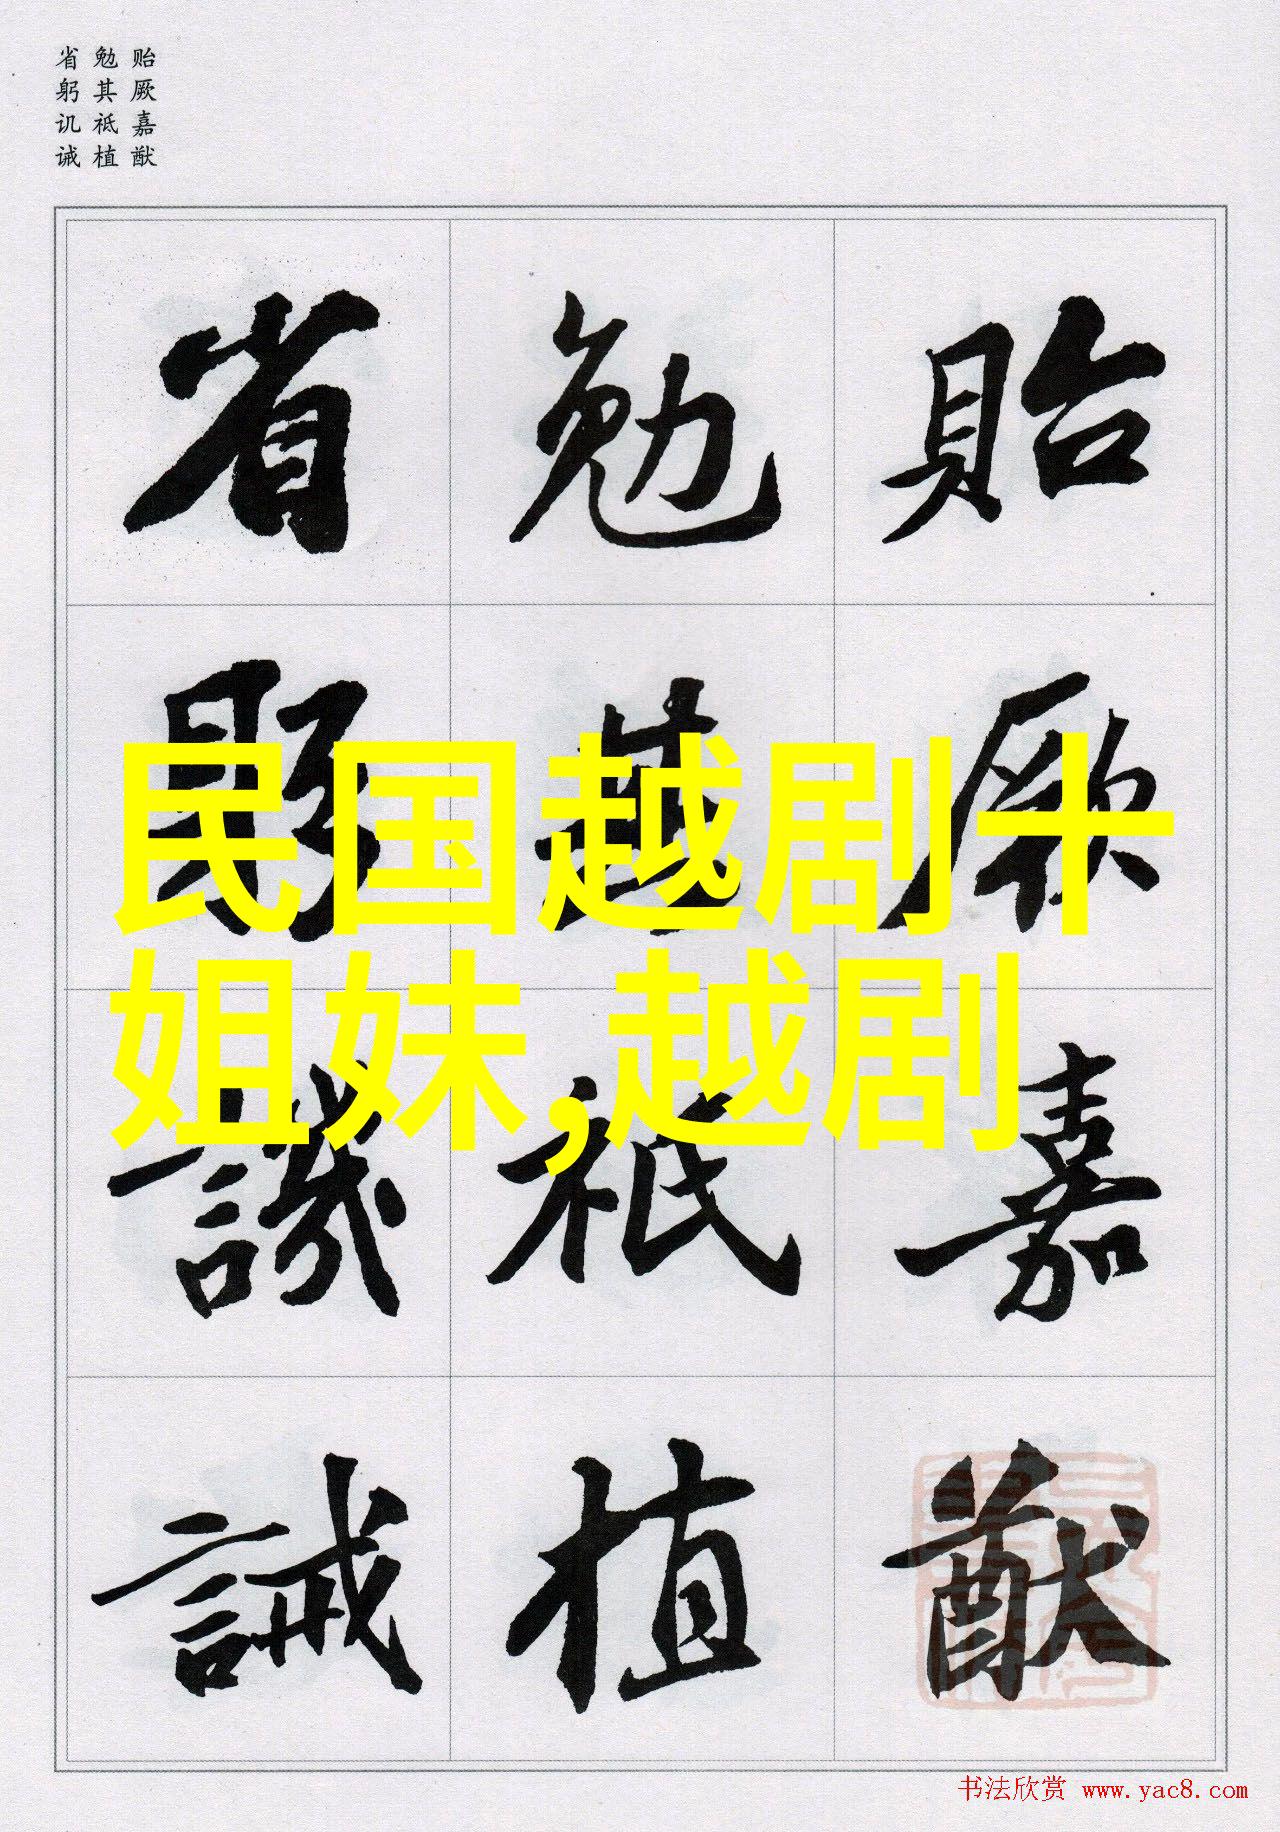 贻厥嘉猷
勉其祗植
省躬讥诫
貽厥嘉猷
勉其祗植
省躬譏誡
民国越剧十
姐妹,越剧
书法欣赏 www.yac8.com